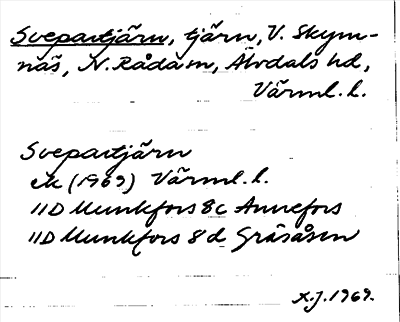 Svepartjärn, tjärn, V. Skym-
näs, N. Råda sn, Älvdals hd,
Värml. l.
Svepartjärn
ek (1969) Värml. l.
11D Munkfors 8c Annefors
11D Munkfors 8d Gräsåsen
X.J. 1969.